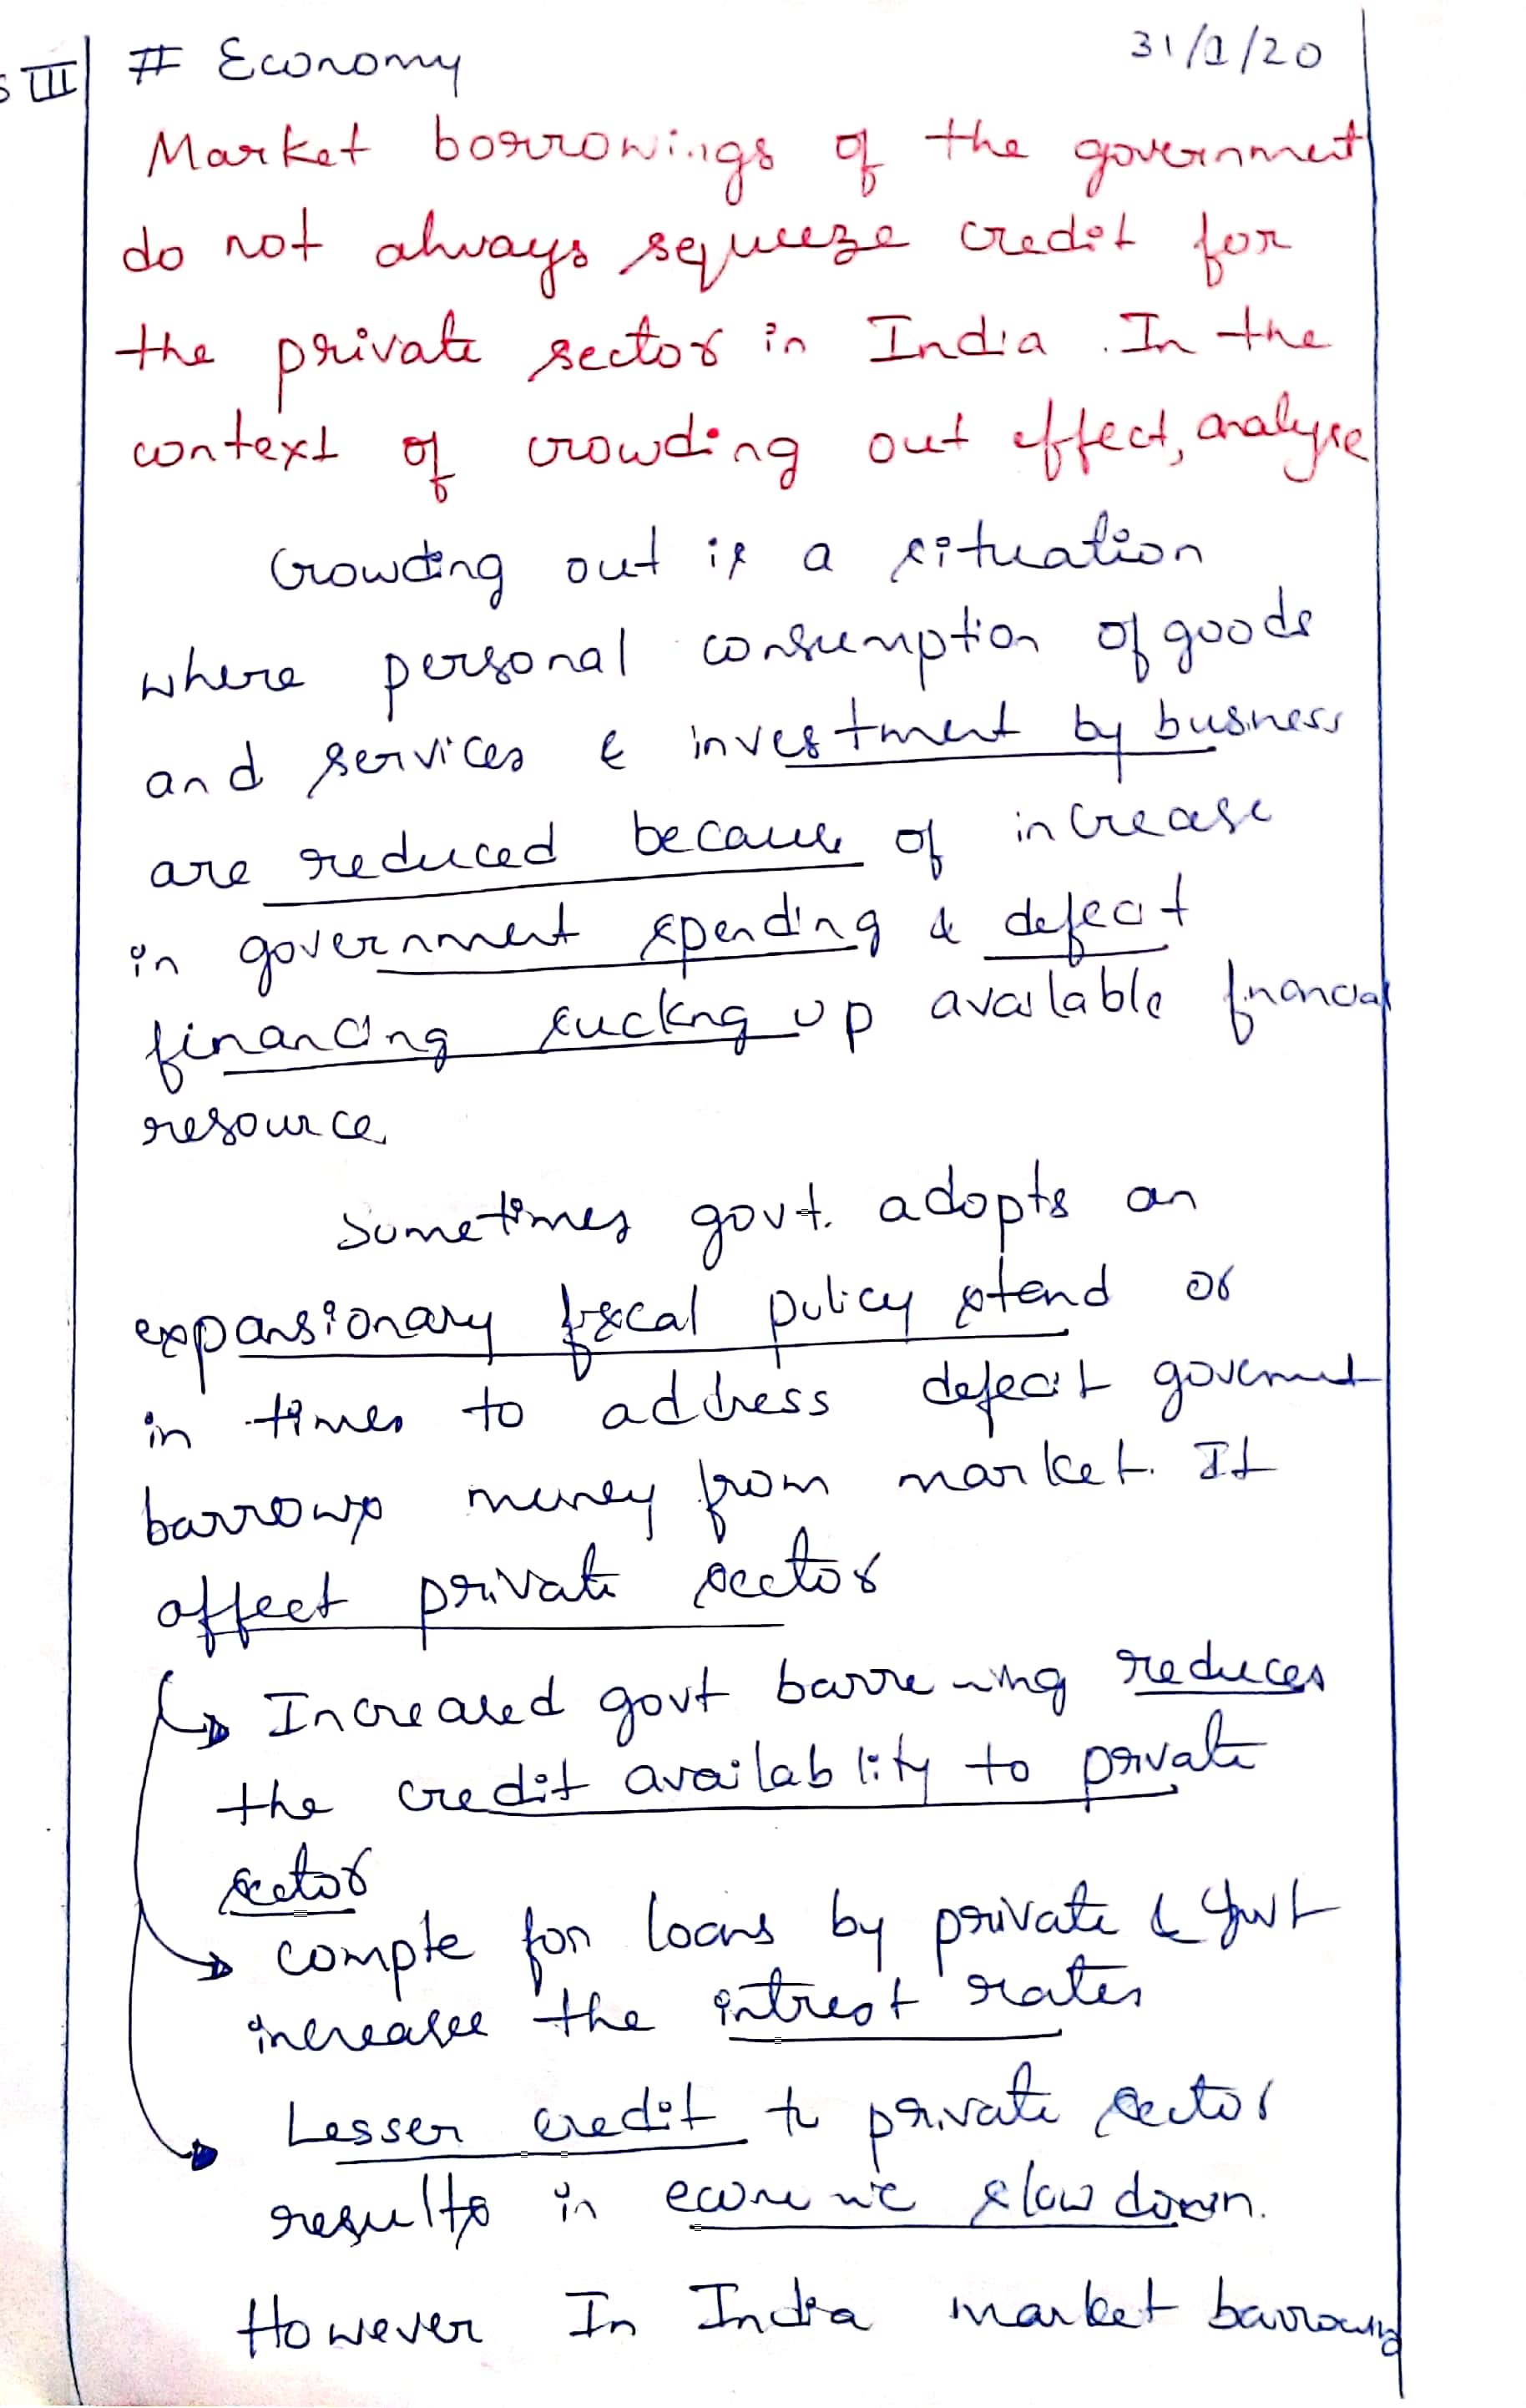 S III # Economy 31/1/20
Market borrowings of the government
do not always squeeze credit for
the private sector in India. In the
context of crowding out effect, analyse
Crowding out is a situation
where personal consumption of goods
and services & investment by business
are reduced because of increase
in government spending & defecit
financing sucking up available financial
resource
Sometimes govt. adopts an
expansionary fiscal policy stand or
in times to address defecit government
barrows money from market. It
affect private sector
Increased govt barrowing reduces
the credit availablity to private
sector
compte for loans by private & govt
increases the intrest rates
Lesser credit to private sector
results in economic slow down.
However In India market barrowing